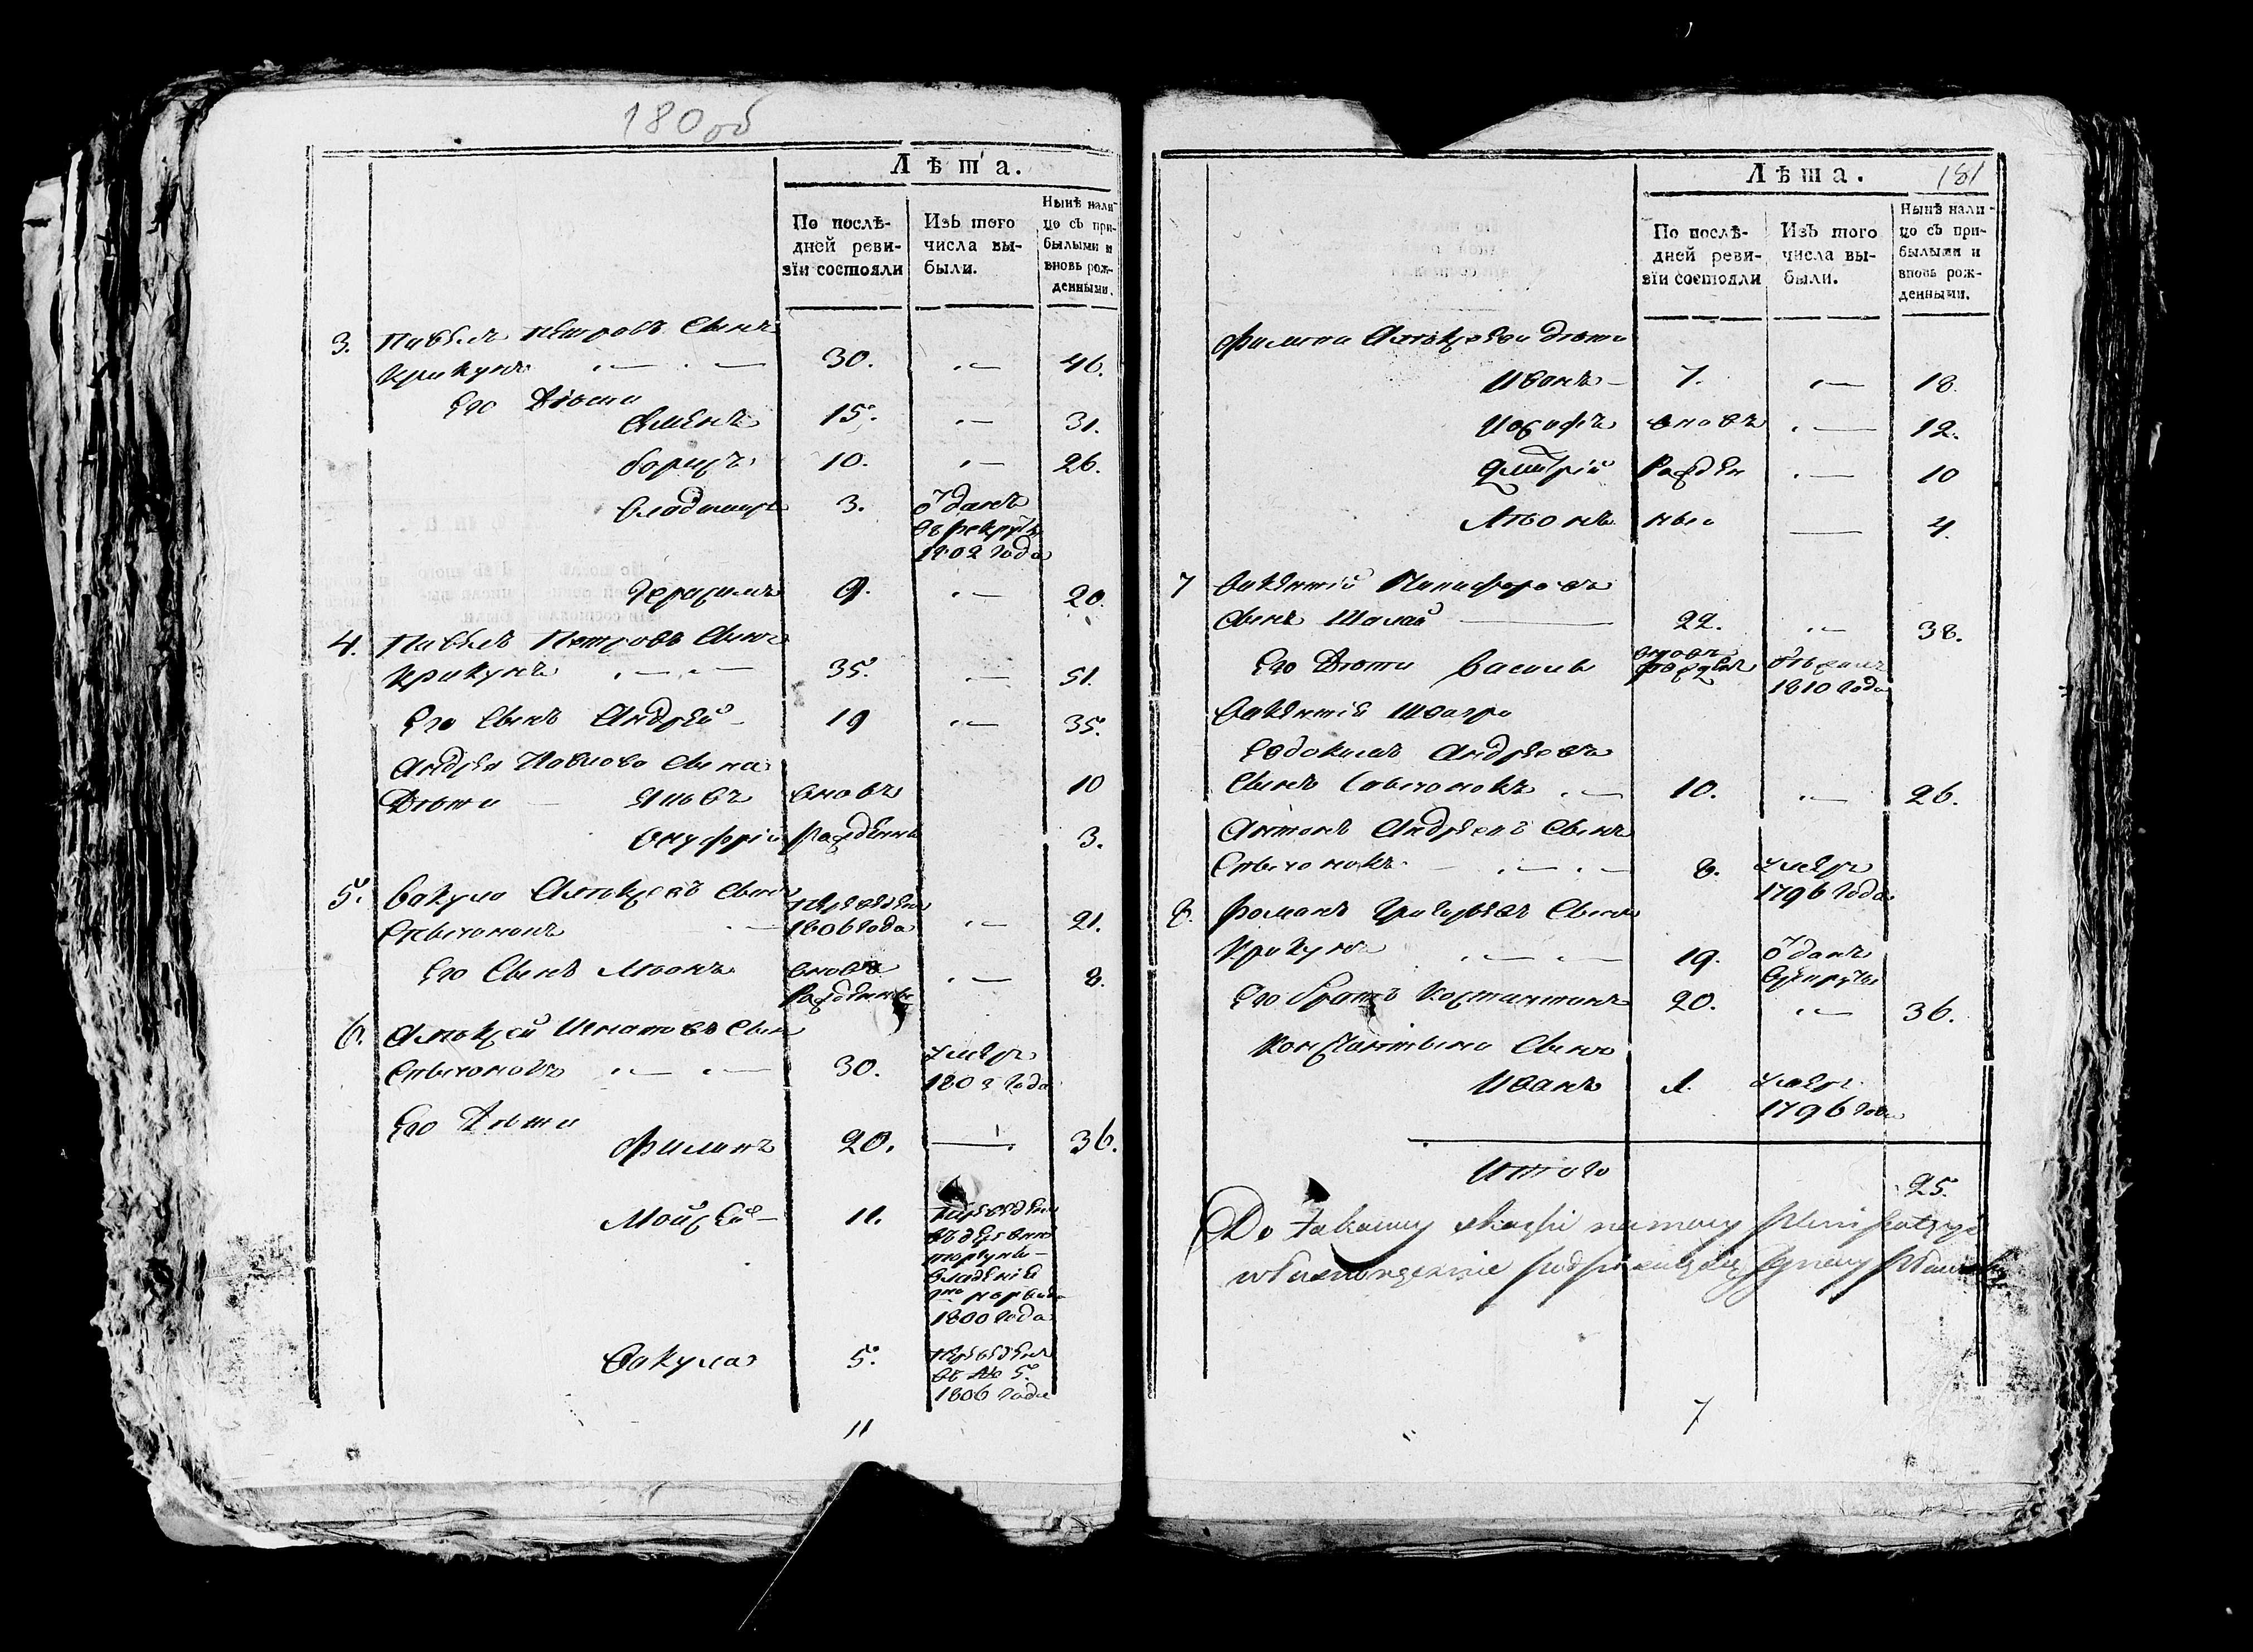 180 об
Лѣта.
По послѣ-
дней реви-
зіи состояли
Изъ того
числа вы-
были.
Нынѣ нали-
цо съ при-
былыми и
вновь рож-
денными.
3. Павелъ Петровъ Сынъ
Крикунъ 30. 46.
Его Дѣти
Семенъ 15. 31.
Борисъ 10. 26.
Владимиръ 3. Отданъ
въ рекруты
1802 года
Герасимъ 9. 20.
4. Павелъ Петровъ Сынъ
Крикунъ 35. 51.
Его Сынъ Андрей 19 35.
Андрея Павлова Сына
Дѣти Яковъ вновь 10
Онуфрій Рожденны 3.
5. Вакула Алексеевъ Сынъ переведенъ
1806 года 21.
Его Сынъ Леонъ вновь 8.
Рожденны
6. Алексей Игнатовъ Сынъ
30. умеръ
180 года
Его Дѣти
Филипъ 20. 36.
Мойсей 11. переведенъ
въ деревню
владенія
1800 года
Вакула 5. переведенъ
въ № 5.
1806 года
11
181
Лѣта.
По послѣ-
дней реви-
зіи состояли
Изъ того
числа вы-
были.
Нынѣ нали-
цо съ при-
былыми и
вновь рож-
денными.
Филипа Алексеева дѣти
Иванъ 7. 18
Иосифъ вновь 12.
Дмитрій Рожден 10
Леонъ ные 4.
7 Викентій Никифоровъ
Сынъ 22. 38.
Его Дѣти Василь вновь
рожденъ
1810 года
Викентія Швагра
Евдокимъ Андреевъ
Сынъ 10. 26.
Антонъ Андреевъ Сынъ
8. умеръ
1796 года
8. Романъ Григорьевъ Сынъ
Крикунъ 19. Отданъ
в рекруты
Его братъ Костантинъ 20. 36.
Константина Сынъ
Иванъ 1. умеръ
1796 года
Итого 25.
Do takowey
7